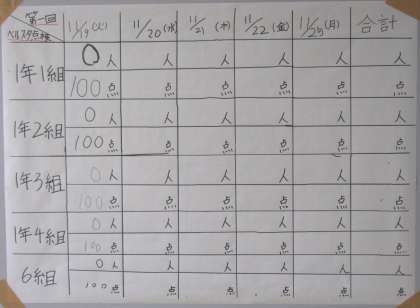 第一回 11/19(火) 11/20(水) 11/21(木) 11/22(金) 11/25(月) 合計
ベルスタ点検
1年1組 0人 人 人 人 人 人
100点 点 点 点 点 点
1年2組 0人 人 人 人 人 人
100点 点 点 点 点 点
1年3組 0人 人 人 人 人 人
100点 点 点 点 点 点
1年4組 0人 人 人 人 人 人
100点 点 点 点 点 点
6組 0人 人 人 人 人 人
100点 点 点 点 点 点